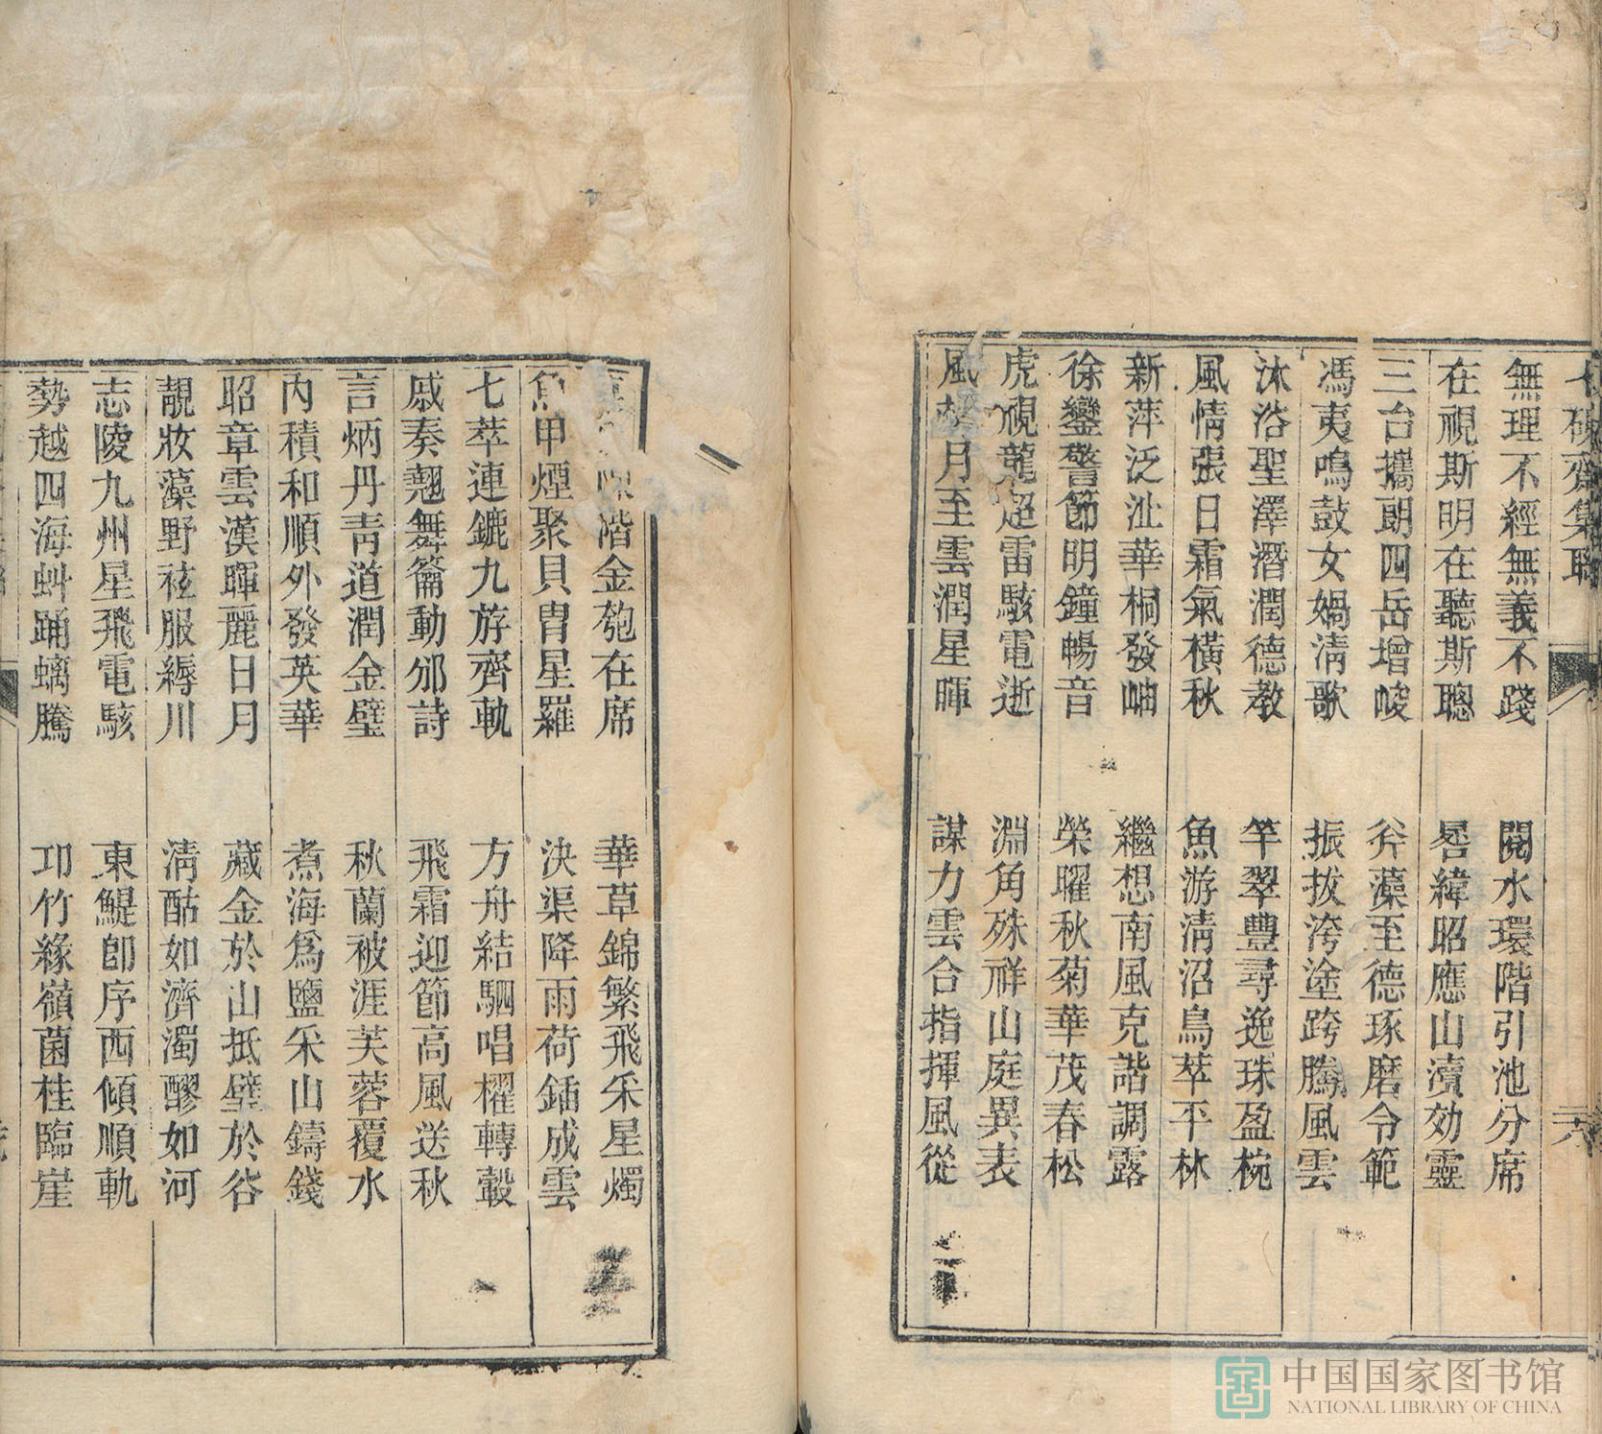 齋集聯
六
無理不經無義不踐　閱水環階引池分席
在視斯明在聽斯聰　晷緯昭應山瀆効靈
三台攡朗四岳增峻　斧藻至德琢磨令範
馮夷鳴鼓女媧清歌　振拔洿塗跨騰風雲
沐浴聖澤潛潤德教　竿翠豐尋逸珠盈椀
風情張日霜氣橫秋　魚游清沼鳥萃平林
新萍泛沚華桐發岫　繼想南風克諧調露
徐鑾警節明鐘暢音　榮曜秋菊華茂春松
虎視龍超雷駭電逝　淵角殊祥山庭異表
風月至雲潤星暉　謀力雲合指揮風從
階金匏在席　華草錦繁飛采星燭
魚甲煙聚貝胄星羅　決渠降雨荷鍤成雲
七萃連鑣九斿齊軌　方舟結駟唱櫂轉轂
戚奏翹舞籥動邠詩　飛霜迎節高風送秋
言炳丹靑道潤金璧　秋蘭被涯芙蓉覆水
內積和順外發英華　煮海爲鹽采山鑄錢
昭章雲漢暉麗日月　藏金於山抵璧於谷
靚妝藻野袨服縟川　清酤如濟濁醪如河
志陵九州星飛電駭　東鯷卽序西傾順軌
勢越四海蚪踊螭騰　邛竹緣嶺菌桂臨崖
中国国家图书馆
NATIONAL LIBRARY OF CHINA